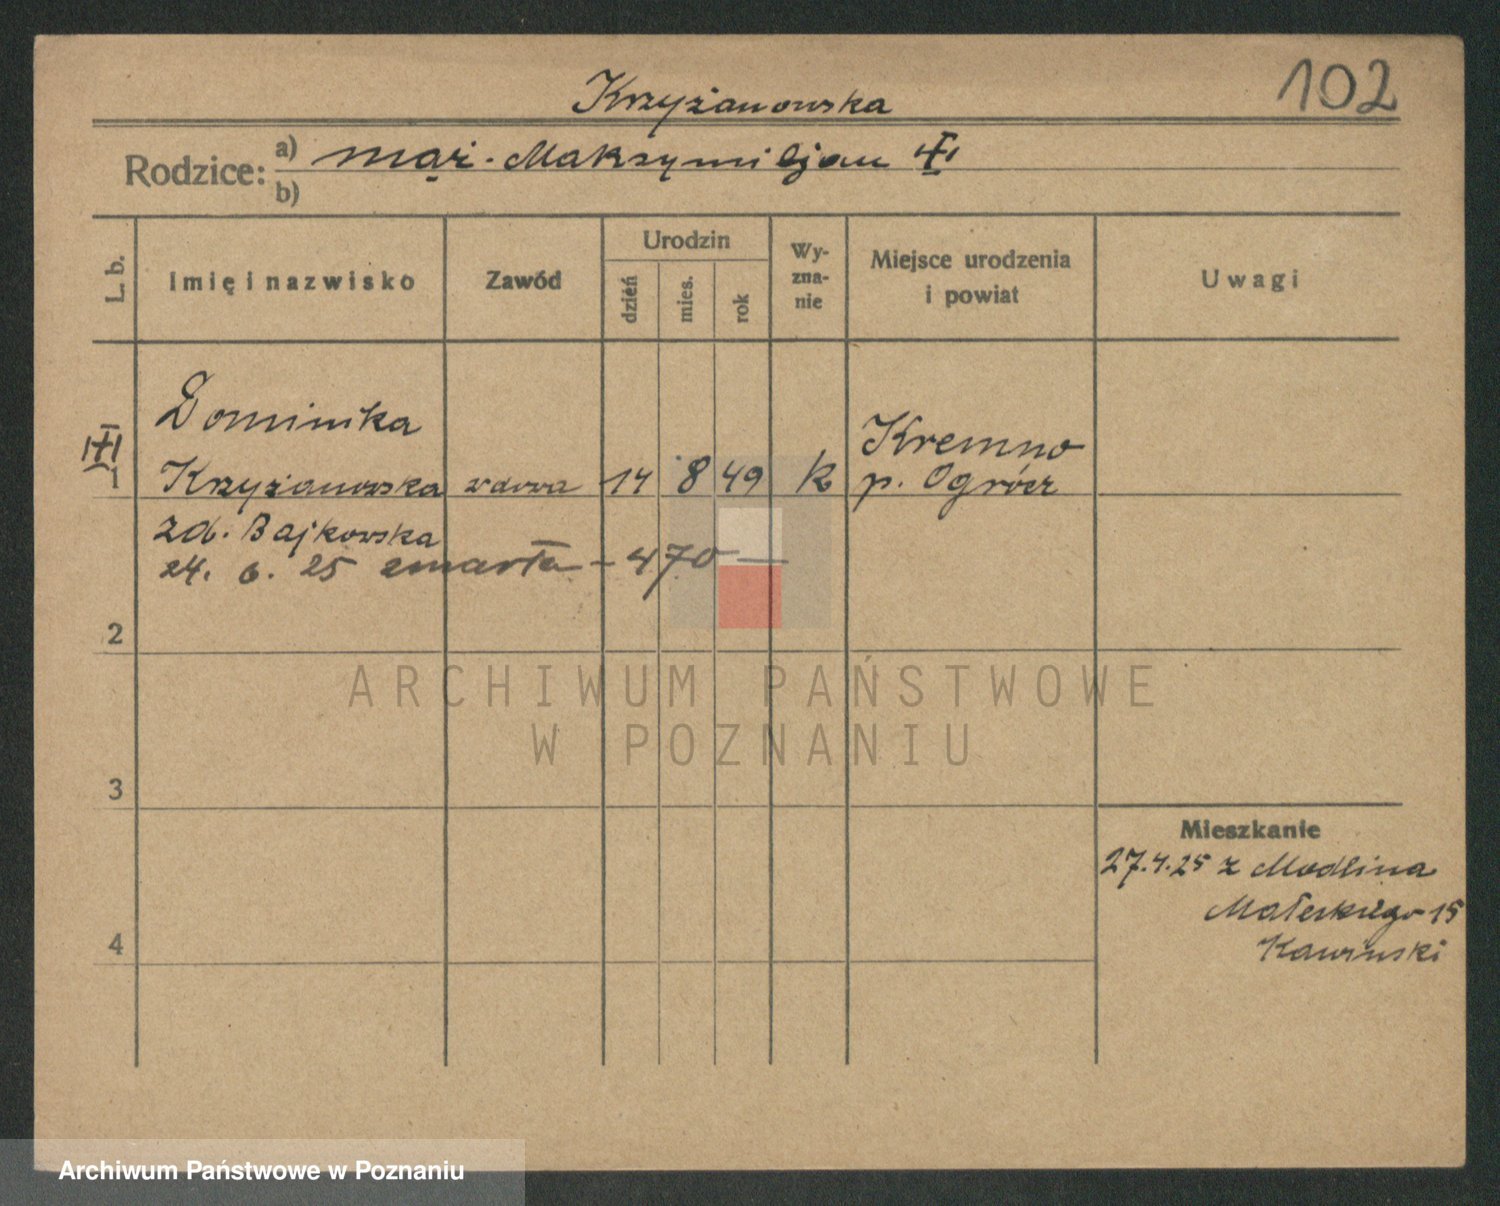 102
Krzyżanowska
Rodzice: a) mąż. Maksymiljan
b)
L. b.
Imię i nazwisko
Zawód
Urodzin
dzień
mies.
rok
Wy-
zna-
nie
Miejsce urodzenia
i powiat
Uwagi
Dominika
1 Krzyżanowska wdowa 14 8 49 k
Kremno
p. Ogrócz
zd. Bajkowska
24. 6. 25 zmarła - 470 -
2
3
4
Mieszkanie
27.4.25 z Modlina
Małeckiego 15
ARCHIWUM PAŃSTWOWE
W POZNANIU
Archiwum Państwowe w Poznaniu